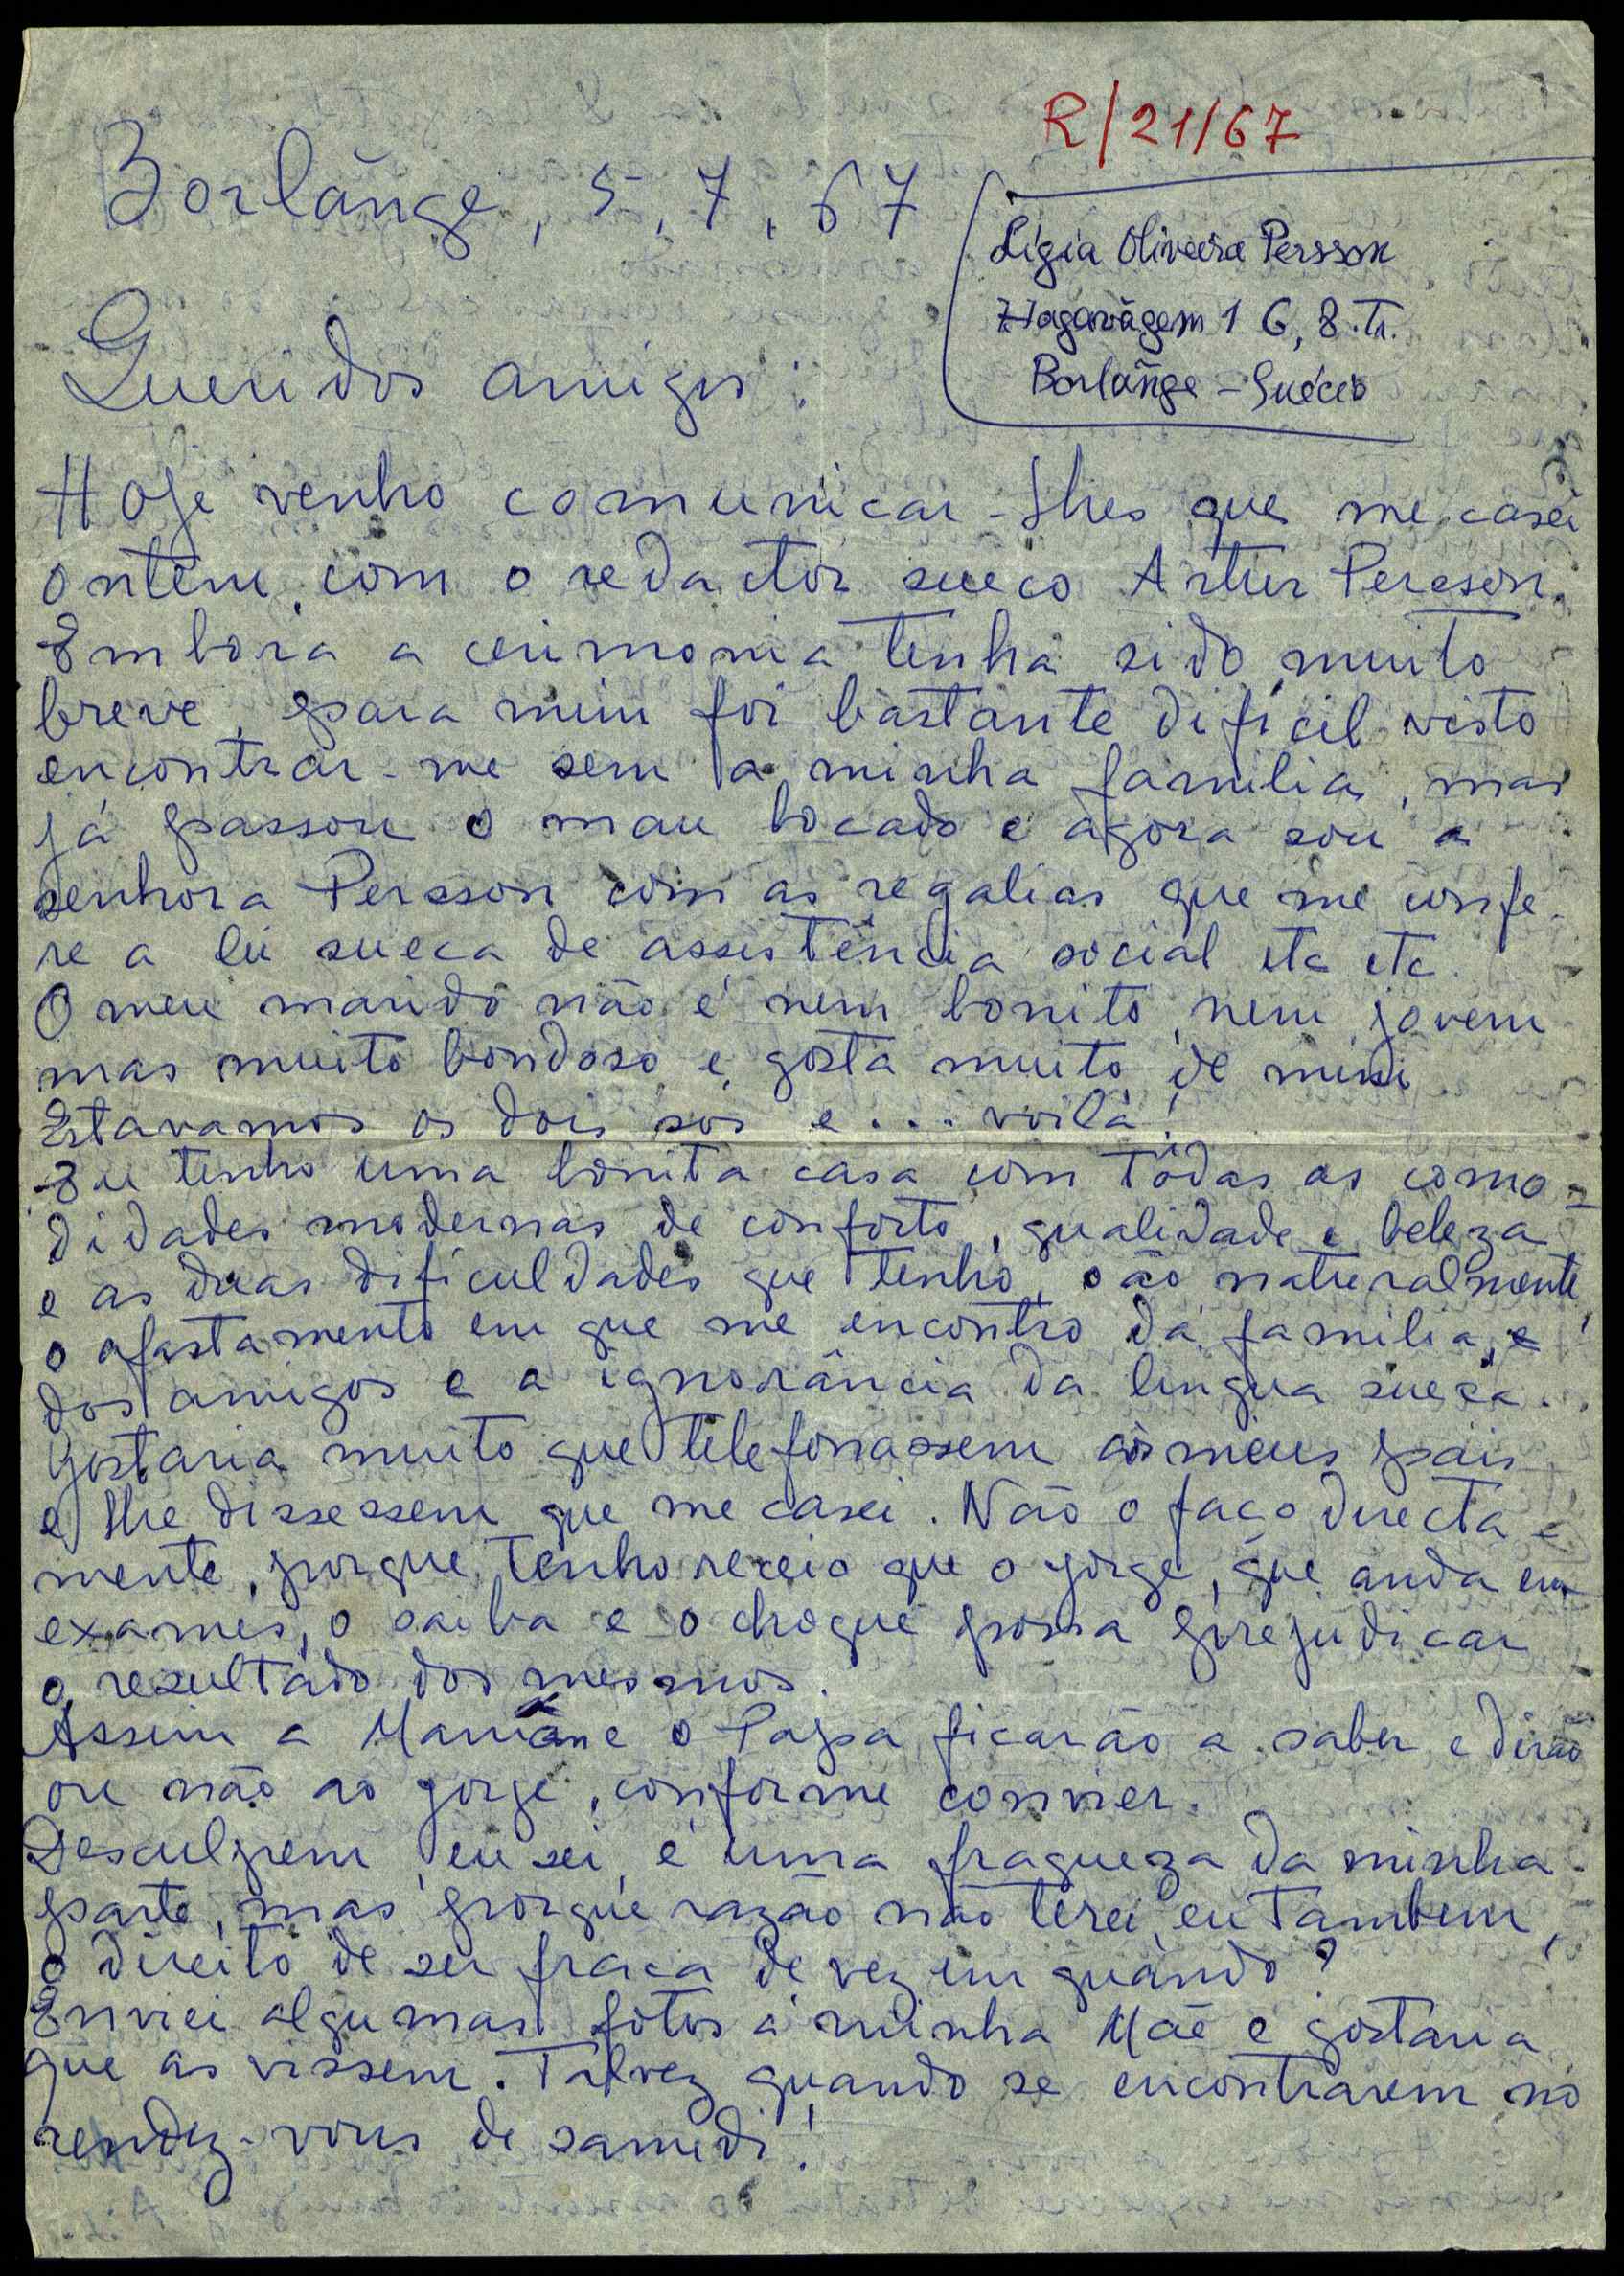 R/21/67
Borlãnge, 5.7.67
Lígia Oliveira Persson
Hagavägem 1 G, 8.Tr.
Borlãnge - Suécia
Queridos amigos:
Hoje venho comunicar-lhes que me casei
ontem, com o redactor sueco Artur Persson.
Embora a cerimonia tenha sido muito
breve, para mim foi bastante difícil visto
encontrar-me sem a minha familia, mas
já passou o mau bocado e agora sou a
senhora Persson com as regalias que me confe-
re a lei sueca de assistência social etc etc.
O meu marido não é nem bonito, nem jovem
mas muito bondoso e gosta muito de mim
Estavamos os dois sós e... voilà!
Eu tenho uma bonita casa com tôdas as como-
didades modernas de conforto, qualidade e beleza
e as duas dificuldades que tenho, são naturalmente
o afastamento em que me encontro da familia, e
dos amigos e a ignorância da lingua sueca.
Gostaria muito que telefonassem aos meus pais
e lhe dissessem que me casei. Não o faço directa-
mente, porque tenho receio que o Jorge, que anda em
exames, o saiba e o choque possa prejudicar
o resultado dos mesmos.
Assim a Mamãn e o Papa ficarão a saber e dirão
ou não ao Jorge, conforme convier.
Desculpem, eu sei, é uma fraqueza da minha
parte, mas porque razão não terei, eu tambem,
o direito de ser fraca de vez em quando?
Enviei algumas fotos à minha Mãe e gostaria
que as vissem. Talvez quando se encontrarem no
rendez-vous de samedi!